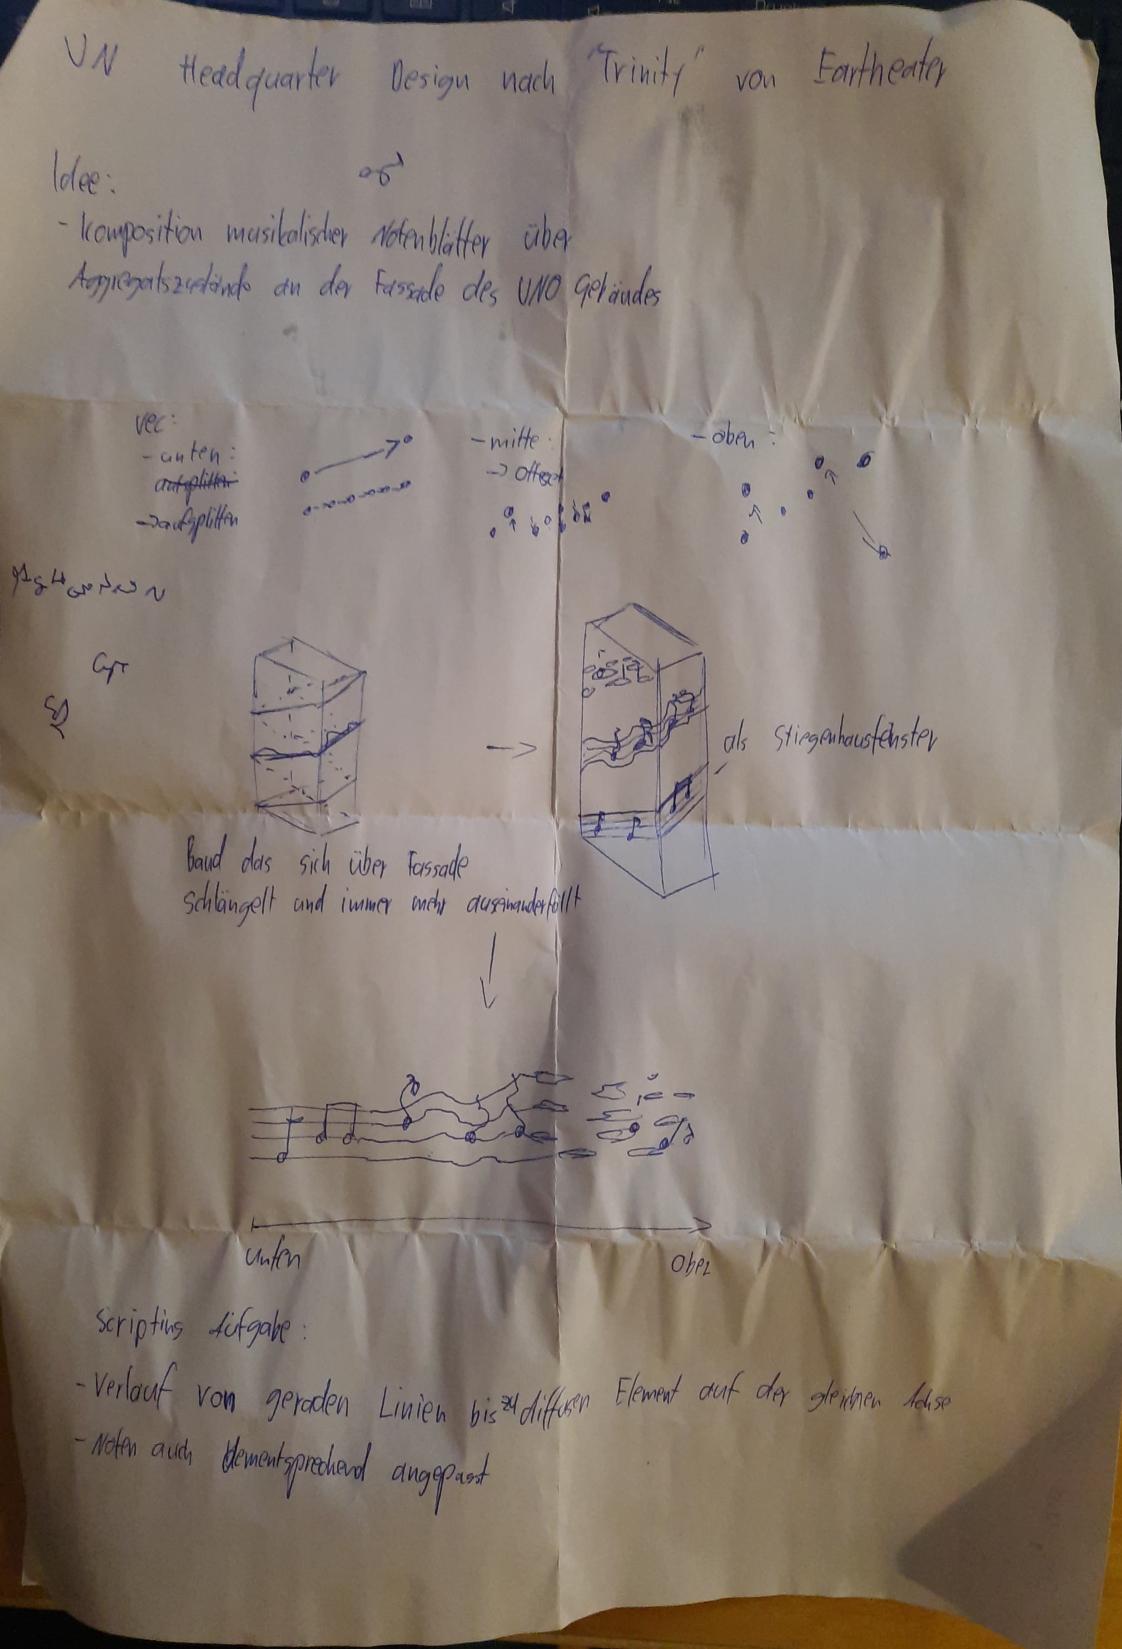 UN Headquarter Design nach "Trinity" von Eartheater
Idee:
- Komposition musikalischer Notenblätter über
Aggregatszustände an der Fassade des UNO Gebäudes
vec:
- unten:
aufsplitten
-> aufsplitten
- mitte:
-> Offset
- oben:
als Stiegenhausfenster
Band das sich über Fassade
schlängelt und immer mehr auseinanderfällt
unten
oben
Scripting Aufgabe:
- Verlauf von geraden Linien bis zu diffusen Element auf der gleichen Achse
- Noten auch dementsprechend angepasst